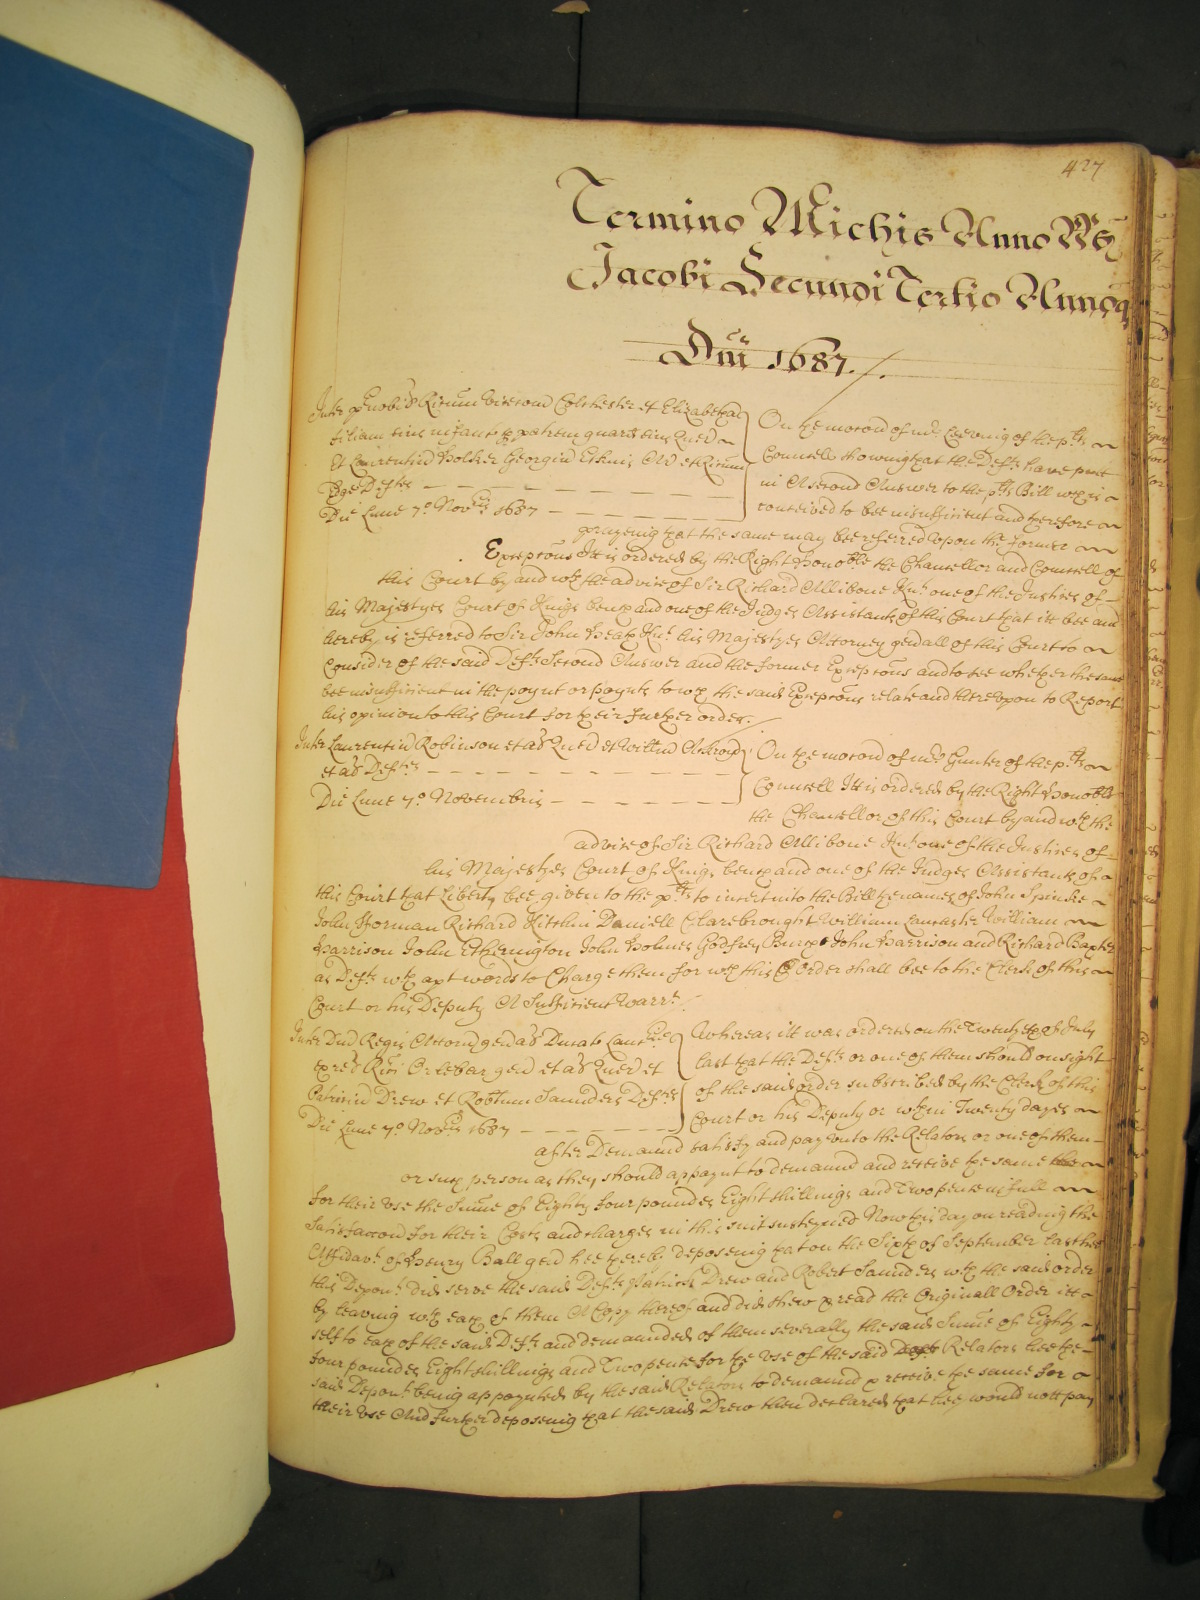 427
Termino Michis Anno R Rs
Jacobi Secundi Tertio Annoq
Dni 1687
Inter Ricum vicecom Colchester et Elizabetham
filiam eius infantem p patrem quer
Et Laurentiu Holker Georgiu Ethris et Ricum
Defts
Die Lune 7o Novris 1687
On the mocond of mr of the plts
Councell showing that the Defts have putt
in A second Answer to the plts Bill wch is
conceived to bee insufficient and therefore
prayeing that the same may bee referred upon the former
Excepcons Itt is ordered by the Right Honoble the Chancellor and Councell of
this Court by and wth the advice of Sir Richard Allibone Knt one of the Justices of
his Majestyes Court of Kings bench and one of the Judges Assistants of this Court that itt bee and
hereby is referred to Sir John Heath Knt his Majestyes Attorney genall of this Court to
Consider of the said Defts Second Answer and the former Excepcons and to see whether the same
bee insufficient in the poynt or poynts to wch the said Excepcons relate and thereupon to Report
his opinion to this Court for their further order.
Inter Laurentiu Robinson et als Quer et Willm
et als Defts
Die Lune 7o Novembris
On the mocond of mr Gunter of the plts
Councell Itt is ordered by the Right Honoble
the Chancellor of this Court by and wth the
advice of Sir Richard Allibone Knt one of the Justices of
his Majestyes Court of Kings bench and one of the Judges Assistants of
this Court that Liberty bee given to the plts to insert into the Bill the names of John Spinke
John Norman Richard Kitchin Daniell Clarebrought William Lancaster William
Harrison John Etherington John Holmes Godfrey Burch John Harrison and Richard Baxter
as Defts wth apt words to Charge them for wch this Order shall bee to the Clerk of this
Court or his Deputy A Sufficient Warrt
Inter Dnu Regis Attorn genal Ducat Lancr
ex rel Rici Orlebar gen et als Quer et
Patriciu Drew et Robtum Saunders Defts
Die Lune 7o Novris 1687
Whereas itt was ordered on the Twentyeth of July
last that the Defts or one of them should on sight
of the said order subscribed by the Clerk of this
Court or his Deputy or wthin Twenty dayes
after Demaund satisfy and pay unto the Relators or one of them
or such person as they should appoynt to demaund and receive the same
for their vse the Summe of Eighty four poundes Eight shillings and Two pence in full
Satisfaccon for their Costs and charges in this suit susteyned Now this day on reading the
Affidavt of Henry Ball gen hee thereby deposeing that on the Sixth of September last hee
this Depont did serve the said Defts Patrick Drew and Robert Saunders wth the said order
by leaving wth each of them A Copy thereof and did shew & read the Originall Order itt
self to each of the said Defts and demaunded of them severally the said Summe of Eighty
four poundes Eight shillings and Two pence for the vse of the said Relators hee the
said Depont being appoynted by the said Relators to demaund & receive the same for
their vse And further deposeing that the said Drew then declared that hee would nott pay